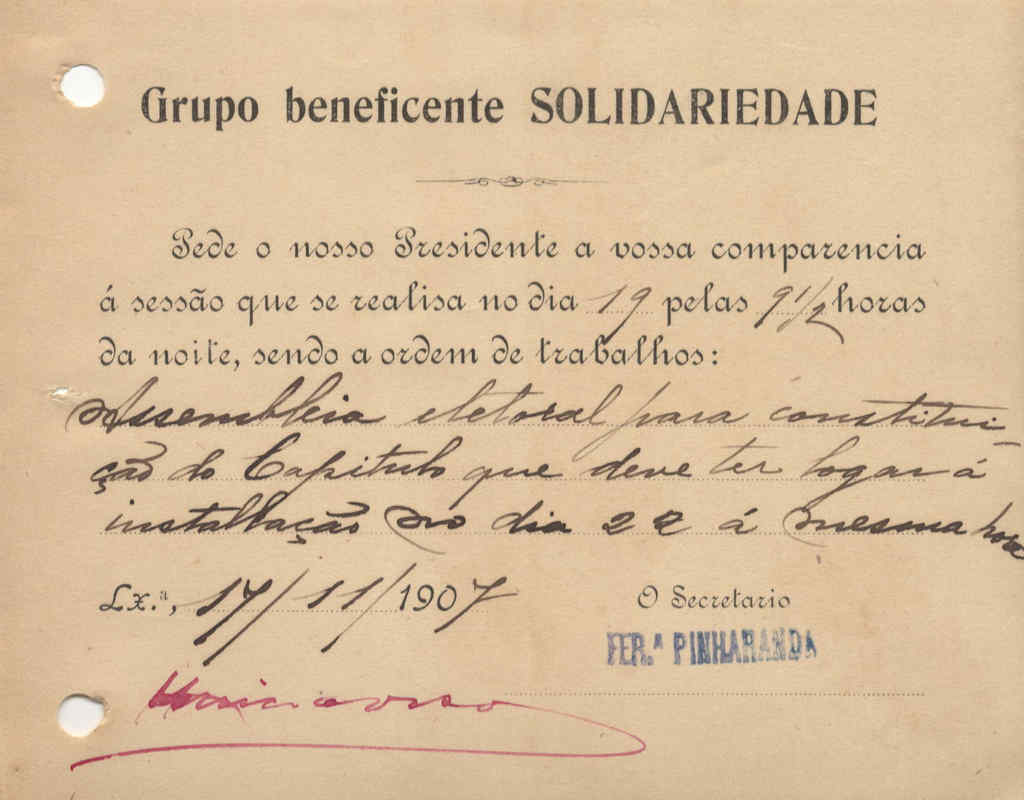 Grupo beneficente SOLIDARIEDADE
Pede o nosso Presidente a vossa comparencia
á sessão que se realisa no dia 19 pelas 9 1/2 horas
da noite, sendo a ordem de trabalhos:
Assembleia eletoral para constitui-
ção do Capitulo que deve ter logar á
installação no dia 22 á mesma hora
Lx.ª, 17/11/1907
O Secretario
FER.ª PINHARANDA
Unico aviso